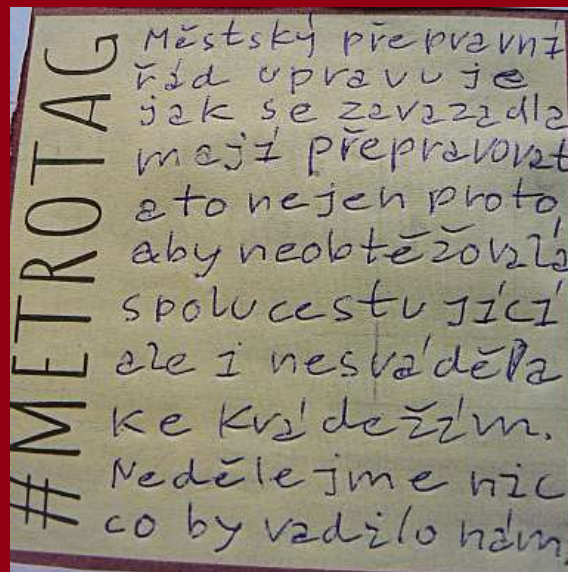 #METROTAG
Městský přepravní
řád upravuje
jak se zavazadla
mají přepravovat
a to nejen proto
aby neobtěžovala
spolucestující
ale i nesváděla
ke krádežím.
Nedělejme nic
co by vadilo nám,